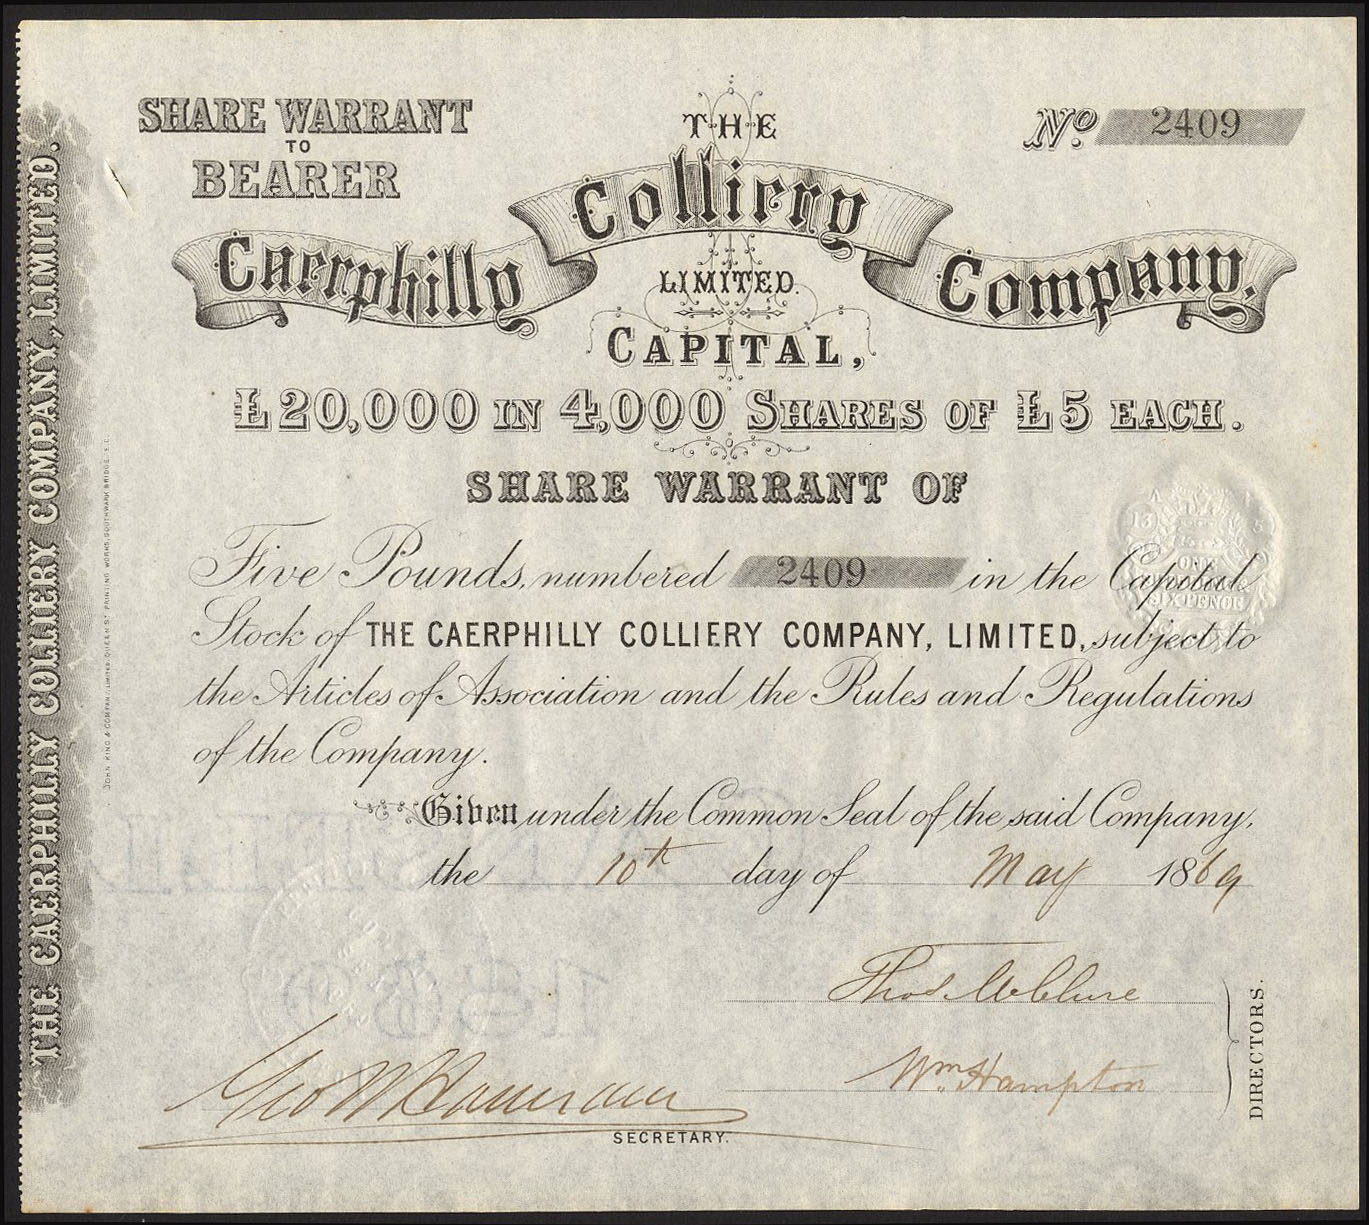 SHARE WARRANT
TO
BEARER
No. 2409
THE
Caerphilly Colliery Company,
LIMITED.
CAPITAL,
£20,000 IN 4,000 SHARES OF £5 EACH.
SHARE WARRANT OF
Five Pounds, numbered 2409 in the Capital
Stock of THE CAERPHILLY COLLIERY COMPANY, LIMITED, subject to
the Articles of Association and the Rules and Regulations
of the Company.
Given under the Common Seal of the said Company,
the 10th day of May 1869
Thos
Wm Hampton
DIRECTORS.
Geo W
SECRETARY.
THE CAERPHILLY COLLIERY COMPANY, LIMITED.
JOHN KING & COMPANY, LIMITED, QUEEN ST PRINTING WORKS, SOUTHWARK BRIDGE. S.E.
ONE
SIX PENCE